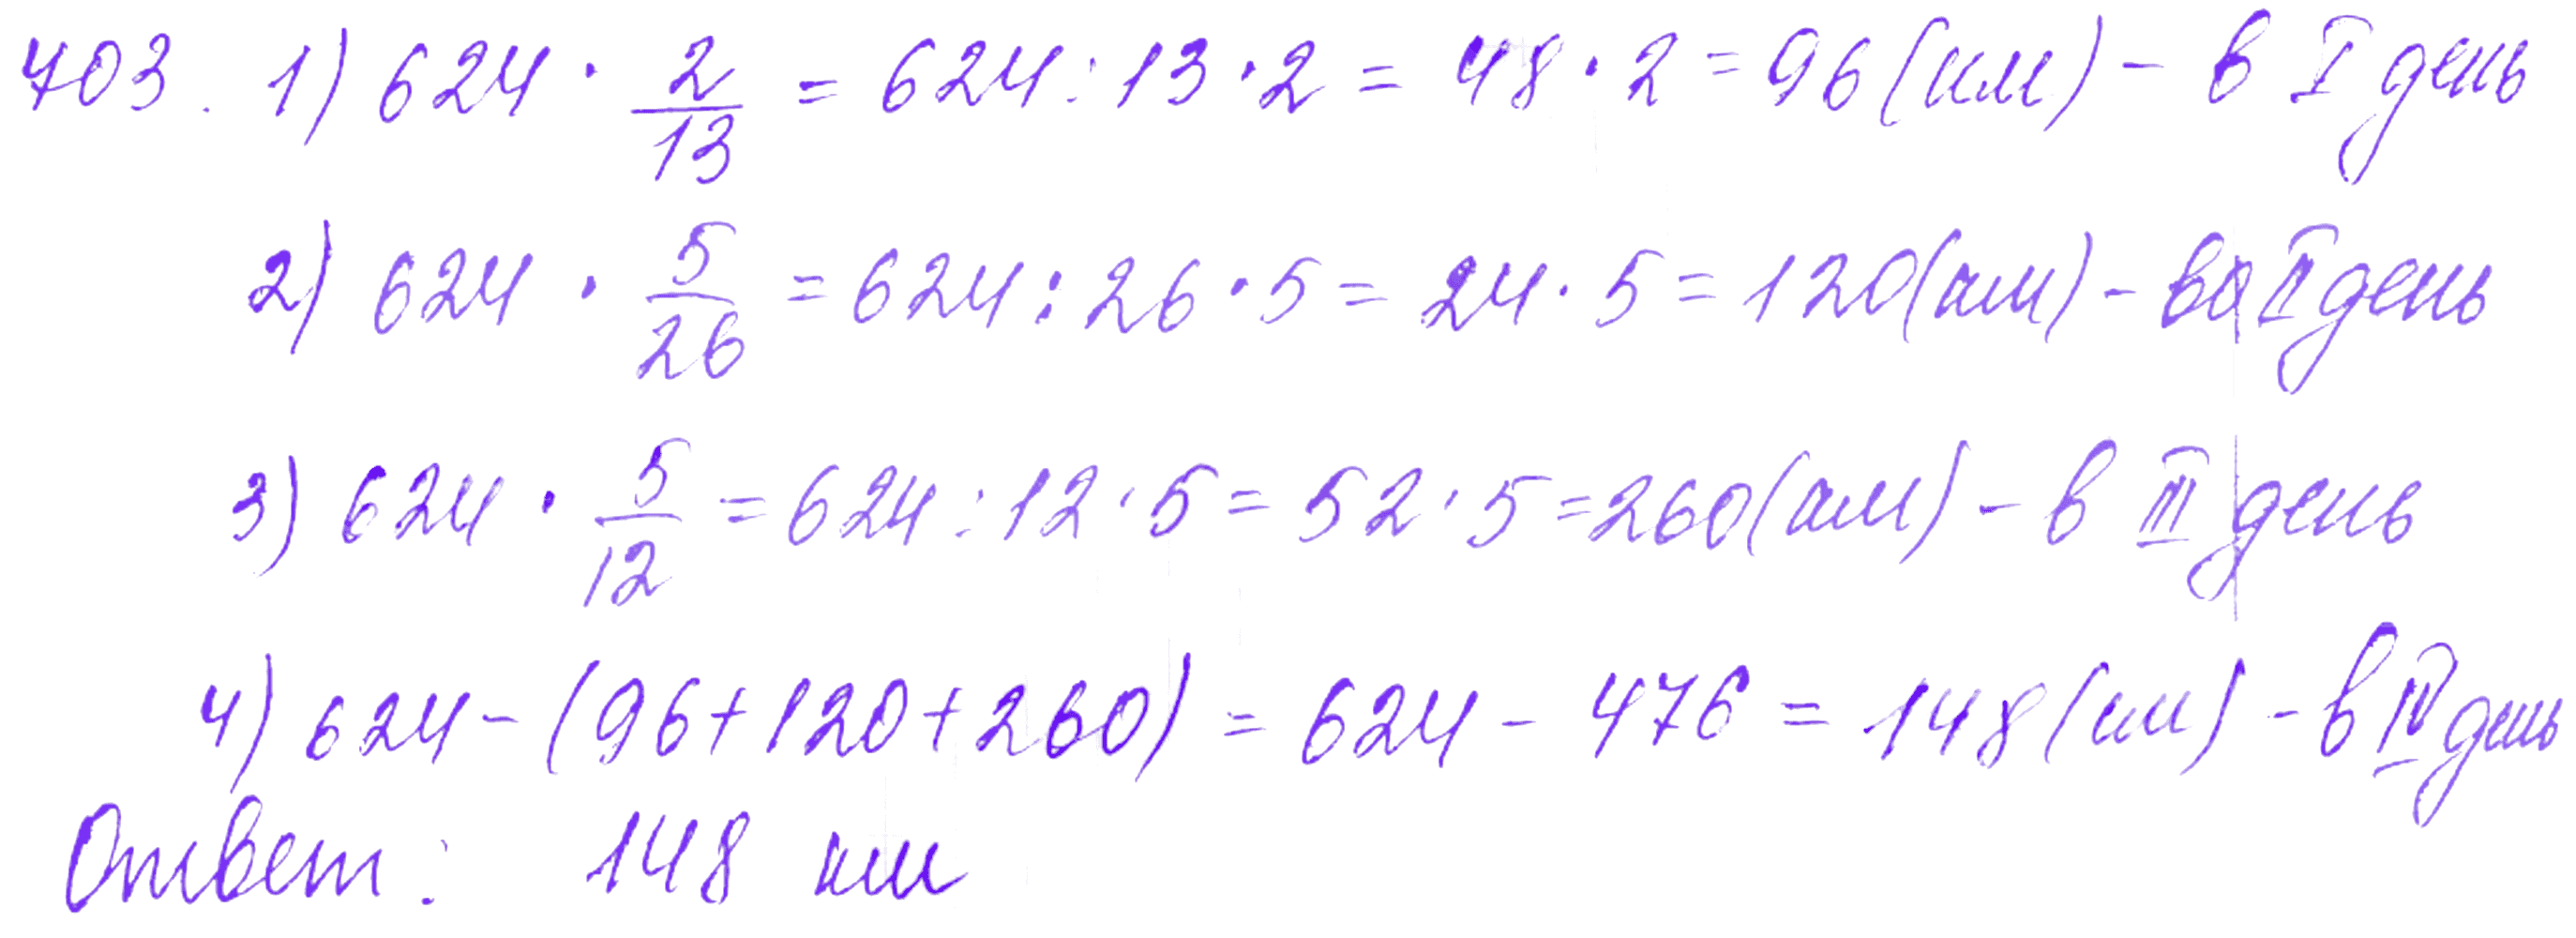 703. 1) 624 · 2/13 = 624 : 13 · 2 = 48 · 2 = 96 (км) - в I день
2) 624 · 5/26 = 624 : 26 · 5 = 24 · 5 = 120 (км) - во II день
3) 624 · 5/12 = 624 : 12 · 5 = 52 · 5 = 260 (км) - в III день
4) 624 - (96 + 120 + 260) = 624 - 476 = 148 (км) - в IV день
Ответ: 148 км